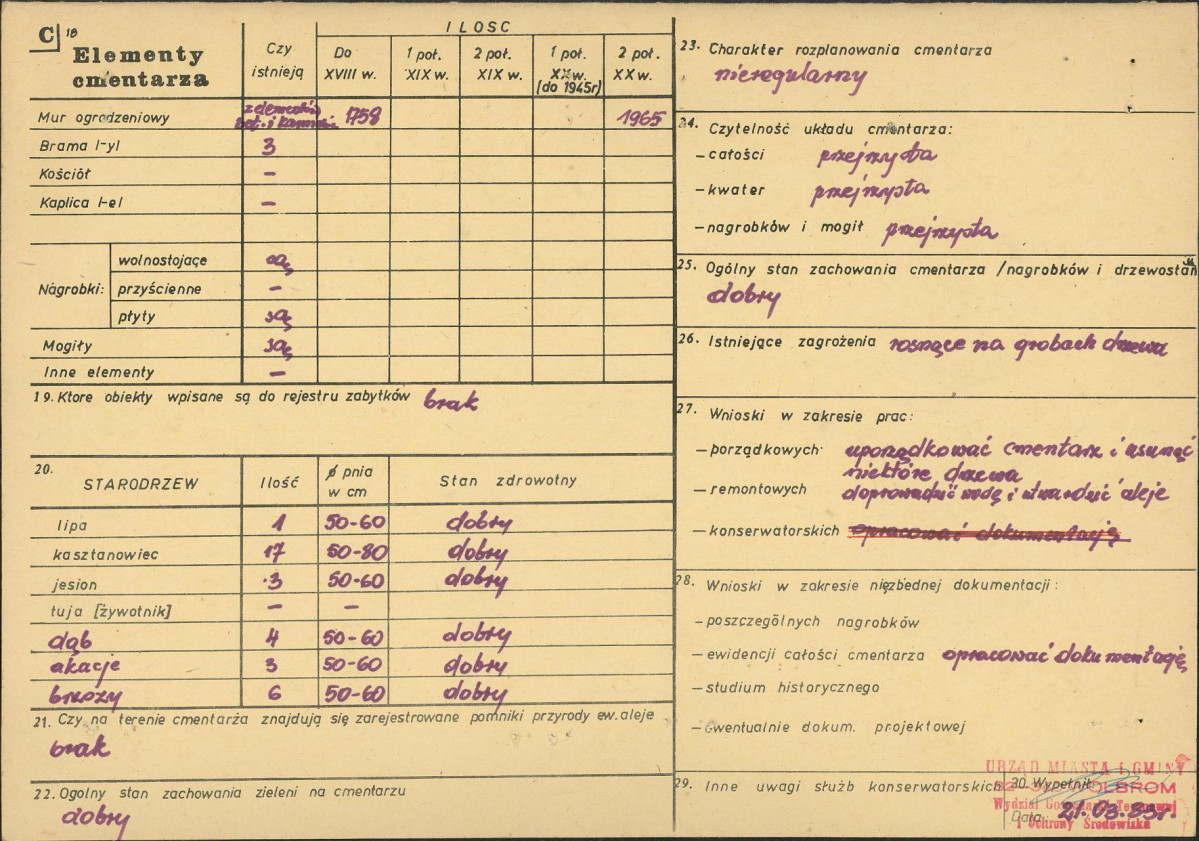 C 18 Elementy cmentarza
Czy istnieją
ILOSC
Do XVIII w.
1 poł. XIX w.
2 poł. XIX w.
1 poł. XX w. (do 1945r)
2 poł. XX w.
Mur ogrodzeniowy z elementów bet. i kamieni 1758 1965
Brama l-yl 3
Kościół –
Kaplica l-el –
Nagrobki:
wolnostojące są
przyścienne –
płyty są
Mogiły są
Inne elementy –
19. Ktore obiekty wpisane są do rejestru zabytków brak
20. STARODRZEW Ilość ø pnia w cm Stan zdrowotny
lipa 1 50-60 dobry
kasztanowiec 17 50-80 dobry
jesion 3 50-60 dobry
tuja [żywotnik] – –
dąb 4 50-60 dobry
akacje 3 50-60 dobry
brzozy 6 50-60 dobry
21. Czy na terenie cmentarża znajdują się zarejestrowane pomniki przyrody ew. aleje
brak
22. Ogolny stan zachowania zieleni na cmentarzu
dobry
23. Charakter rozplanowania cmentarza
nieregularny
24. Czytelność układu cmentarza:
– całości przejrzysta
– kwater przejrzysta
– nagrobków i mogił przejrzysta
25. Ogólny stan zachowania cmentarza /nagrobków i drzewostanu
dobry
26. Istniejące zagrożenia rosnące na grobach drzewa
27. Wnioski w zakresie prac:
– porządkowych uporządkować cmentarz i usunąć
niektóre drzewa
– remontowych doprowadzić wodę i utwardzić aleje
– konserwatorskich opracować dokumentację
28. Wnioski w zakresie niezbednej dokumentacji:
– poszczególnych nagrobków
– ewidencji całości cmentarza opracować dokumentację
– studium historycznego
– ewentualnie dokum. projektowej
29. Inne uwagi służb konserwatorskich
30. Wypełnił
Data: 21.03.85r.
URZĄD MIASTA I GMINY
OLBROM
Wydział Gospodarki Terenowej
i Ochrony Środowiska